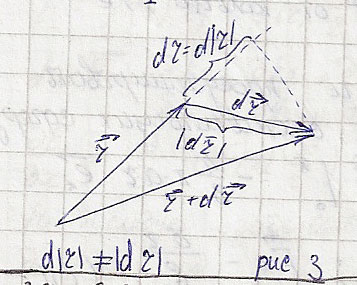 dr = d|r|
dr⃗
|dr⃗|
r⃗
r⃗ + dr⃗
d|r| ≠ |dr|
рис 3